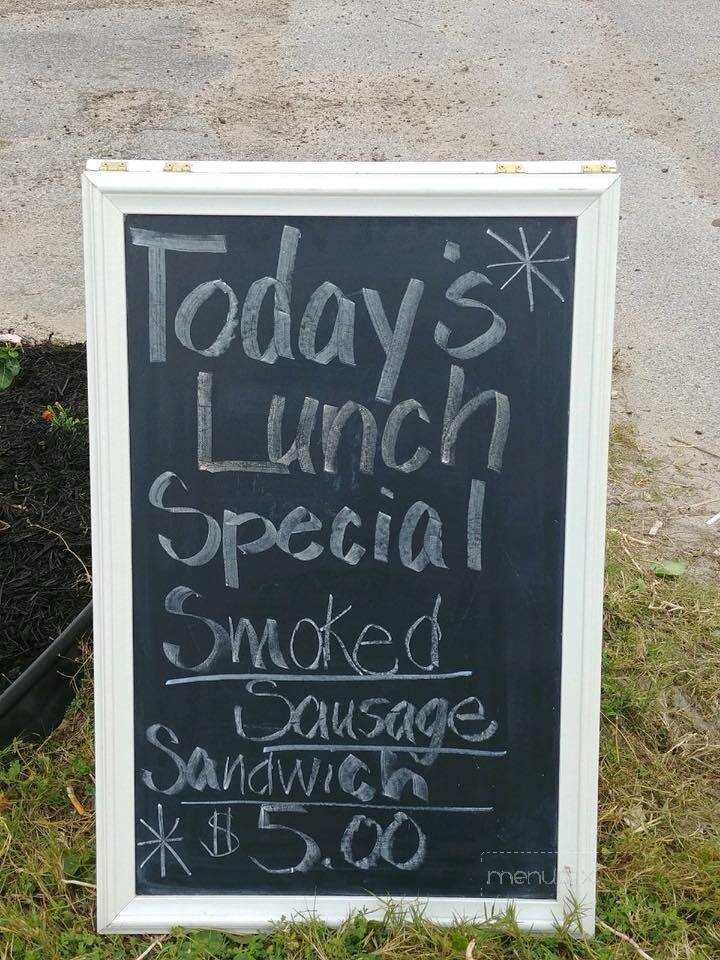 Today's *
Lunch
Special
Smoked
Sausage
Sandwich
* $5.00